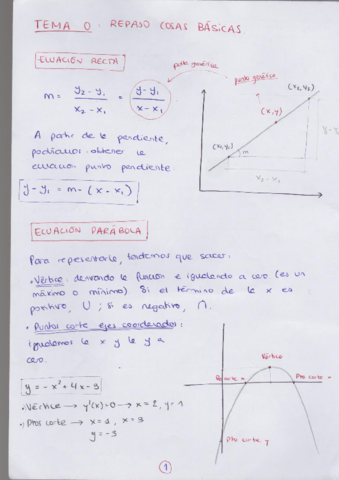 TEMA 0: REPASO COSAS BÁSICAS
ECUACIÓN RECTA
punto genérico
m = (y₂ - y₁)/(x₂ - x₁) = (y - y₁)/(x - x₁)
punto genérico
(x₂, y₂)
(x, y)
(x₁, y₁)
m
x₂ - x₁
A partir de la pendiente,
podríamos obtener la
ecuación punto pendiente:
y - y₁ = m · (x - x₁)
ECUACIÓN PARÁBOLA
Para representarla, tendremos que sacar:
· Vértice: derivando la función e igualando a cero (es un
máximo o mínimo). Si el término de la x es
positivo, ∪; si es negativo, ∩.
· Puntos corte ejes coordenados:
igualamos la x y la y a
cero.
Vértice
Pto corte x
Ptos corte x
Pto corte y
y = -x² + 4x - 3
·) Vértice → y'(x) = 0 → x = 2, y = 1
·) Ptos corte → x = 1, x = 3
y = -3
1